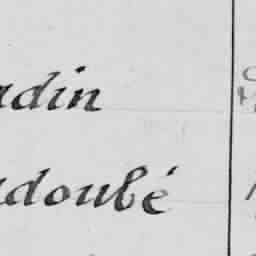 adin
adoubé